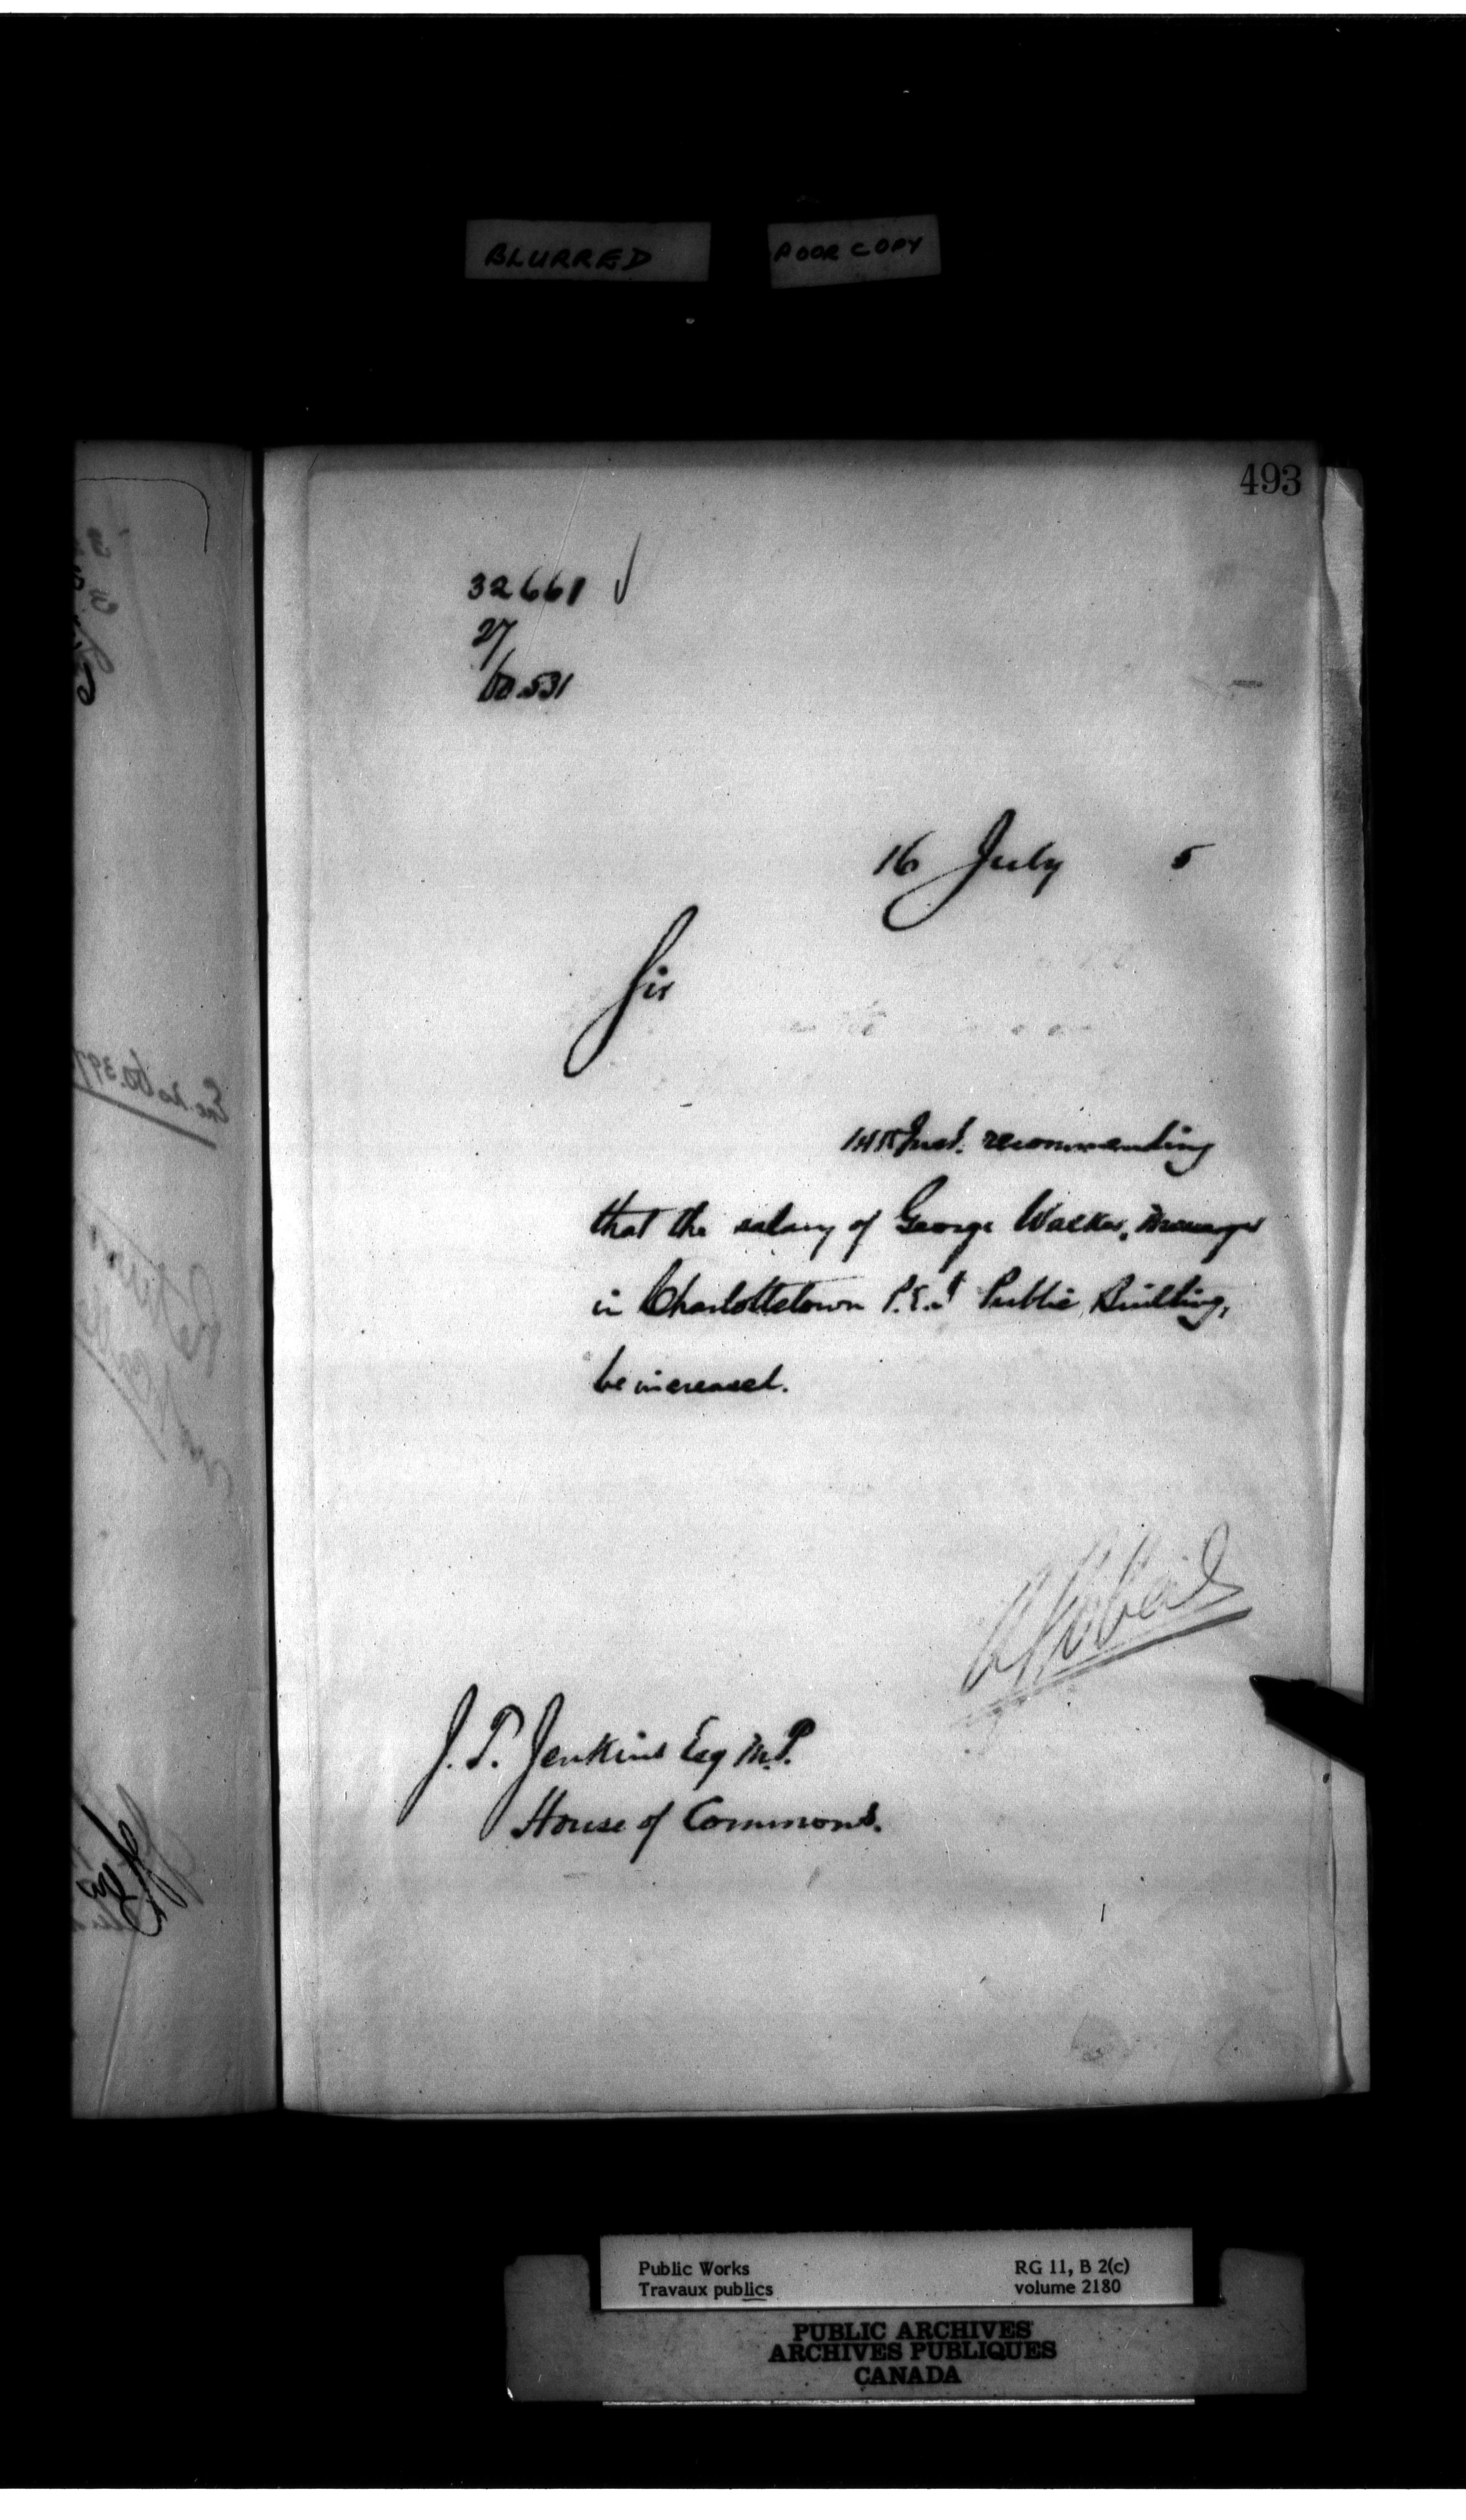 BLURRED
POOR COPY
493
32661 ✓
27
531
16 July 5
Sir
14th Inst. recommending
that the salary of George Walker, Messenger
in Charlottetown P.E.I Public Building,
be increased.
J. T. Jenkins Esq M.P.
House of Commons.
Public Works RG 11, B 2(c)
Travaux publics volume 2180
PUBLIC ARCHIVES
ARCHIVES PUBLIQUES
CANADA